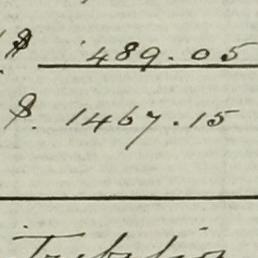 $ 489.05
$. 1467.15